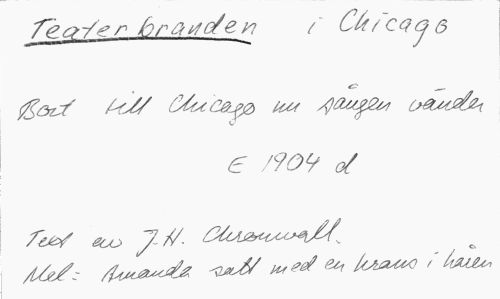 Teaterbranden i Chicago
Bort till Chicago nu sången vänder
E 1904 d
Text av J.H. Chronwall.
Mel: Amanda satt med en krans i håren